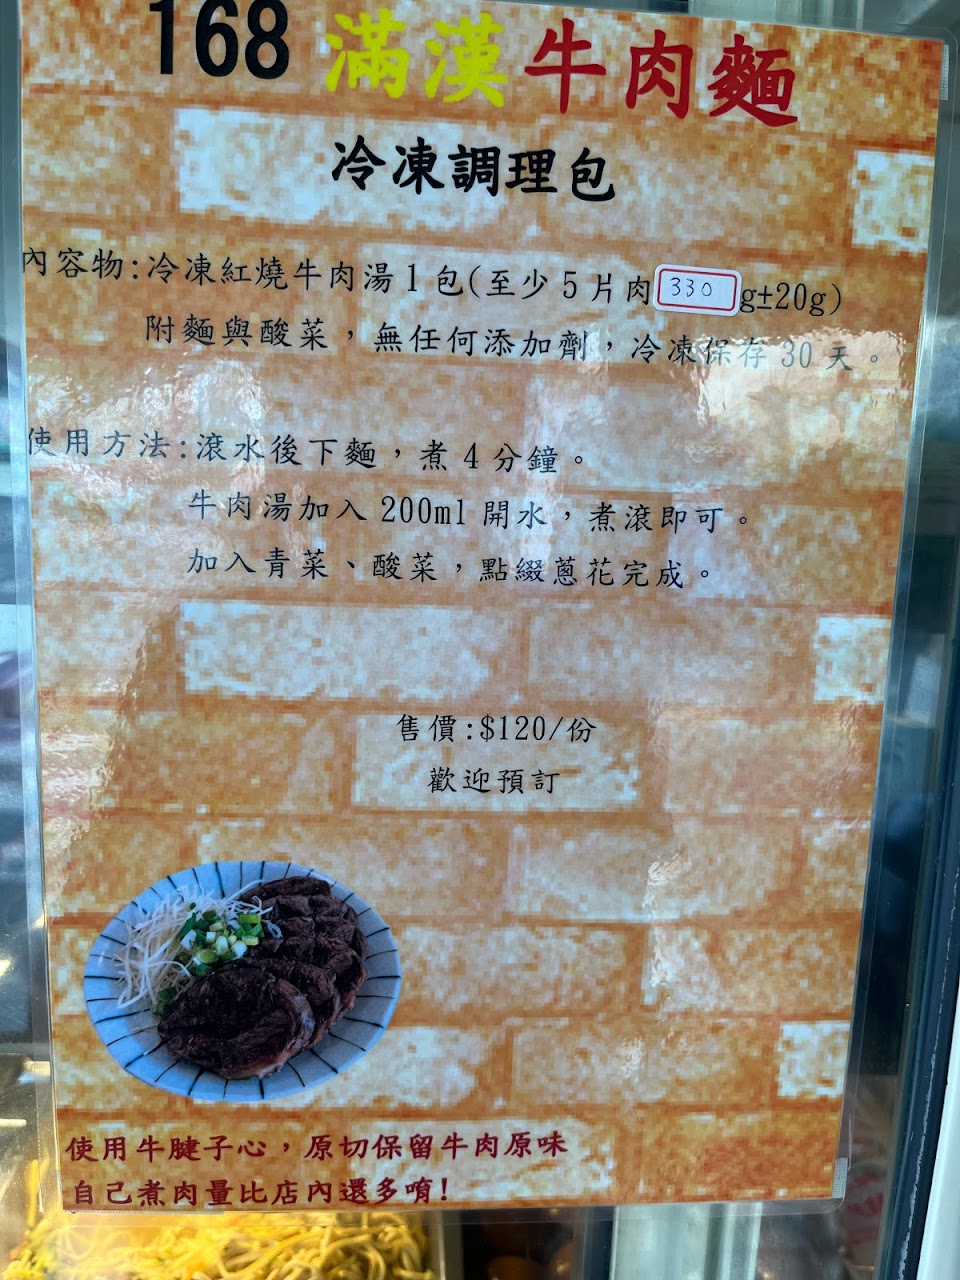 168 滿漢牛肉麵
冷凍調理包
內容物:冷凍紅燒牛肉湯1包(至少5片肉330g±20g)
附麵與酸菜，無任何添加劑，冷凍保存30天。
使用方法:滾水後下麵，煮4分鐘。
牛肉湯加入200ml開水，煮滾即可。
加入青菜、酸菜，點綴蔥花完成。
售價:$120/份
歡迎預訂
使用牛腱子心，原切保留牛肉原味
自己煮肉量比店內還多唷!